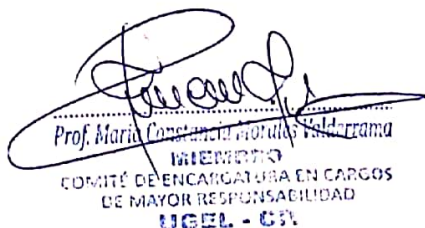 Prof. Maria Constancia Morales Valderrama
MIEMBRO
COMITÉ DE ENCARGATURA EN CARGOS
DE MAYOR RESPONSABILIDAD
UGEL -